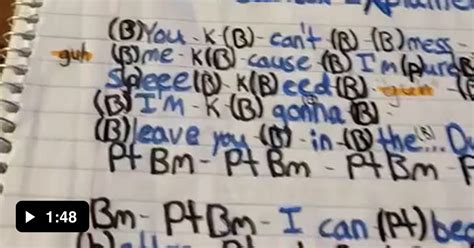 (B)You - K (B) - can't (B) - (B)mess -
guh (B)me - K(B) - cause - (B) I'm (p)ure
speee (B) - K(B)eed (B) - guh -
(B) I'm - K (B) gonna (B) -
(B)leave you - (B) - in - (B) the...
Pt Bm - Pt Bm - Pt Bm -
Bm - Pt Bm - I can (Pt) be
1:48